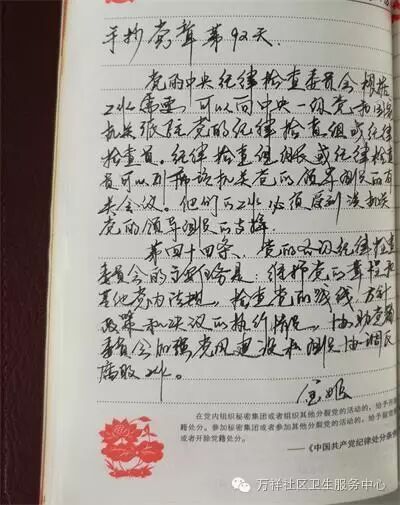 手抄党章第92天
党的中央纪律检查委员会根据
工作需要，可以向中央一级党和国家
机关派驻党的纪律检查组或纪律
检查员。纪律检查组组长或纪律检查
员可以列席该机关党的领导组织的有
关会议。他们的工作必须受到该机关
党的领导组织的支持。
第四十四条、党的各级纪律检查
委员会的主要任务是：维护党的章程和
其他党内法规，检查党的路线、方针
政策和决议的执行情况，协助党的
委员会加强党风建设和组织协调反
腐败工作。
在党内组织秘密集团或者组织其他分裂党的活动的，给予开除
党籍处分。参加秘密集团或者参加其他分裂党的活动的，给予留党察看
或者开除党籍处分。
——《中国共产党纪律处分条例
万祥社区卫生服务中心